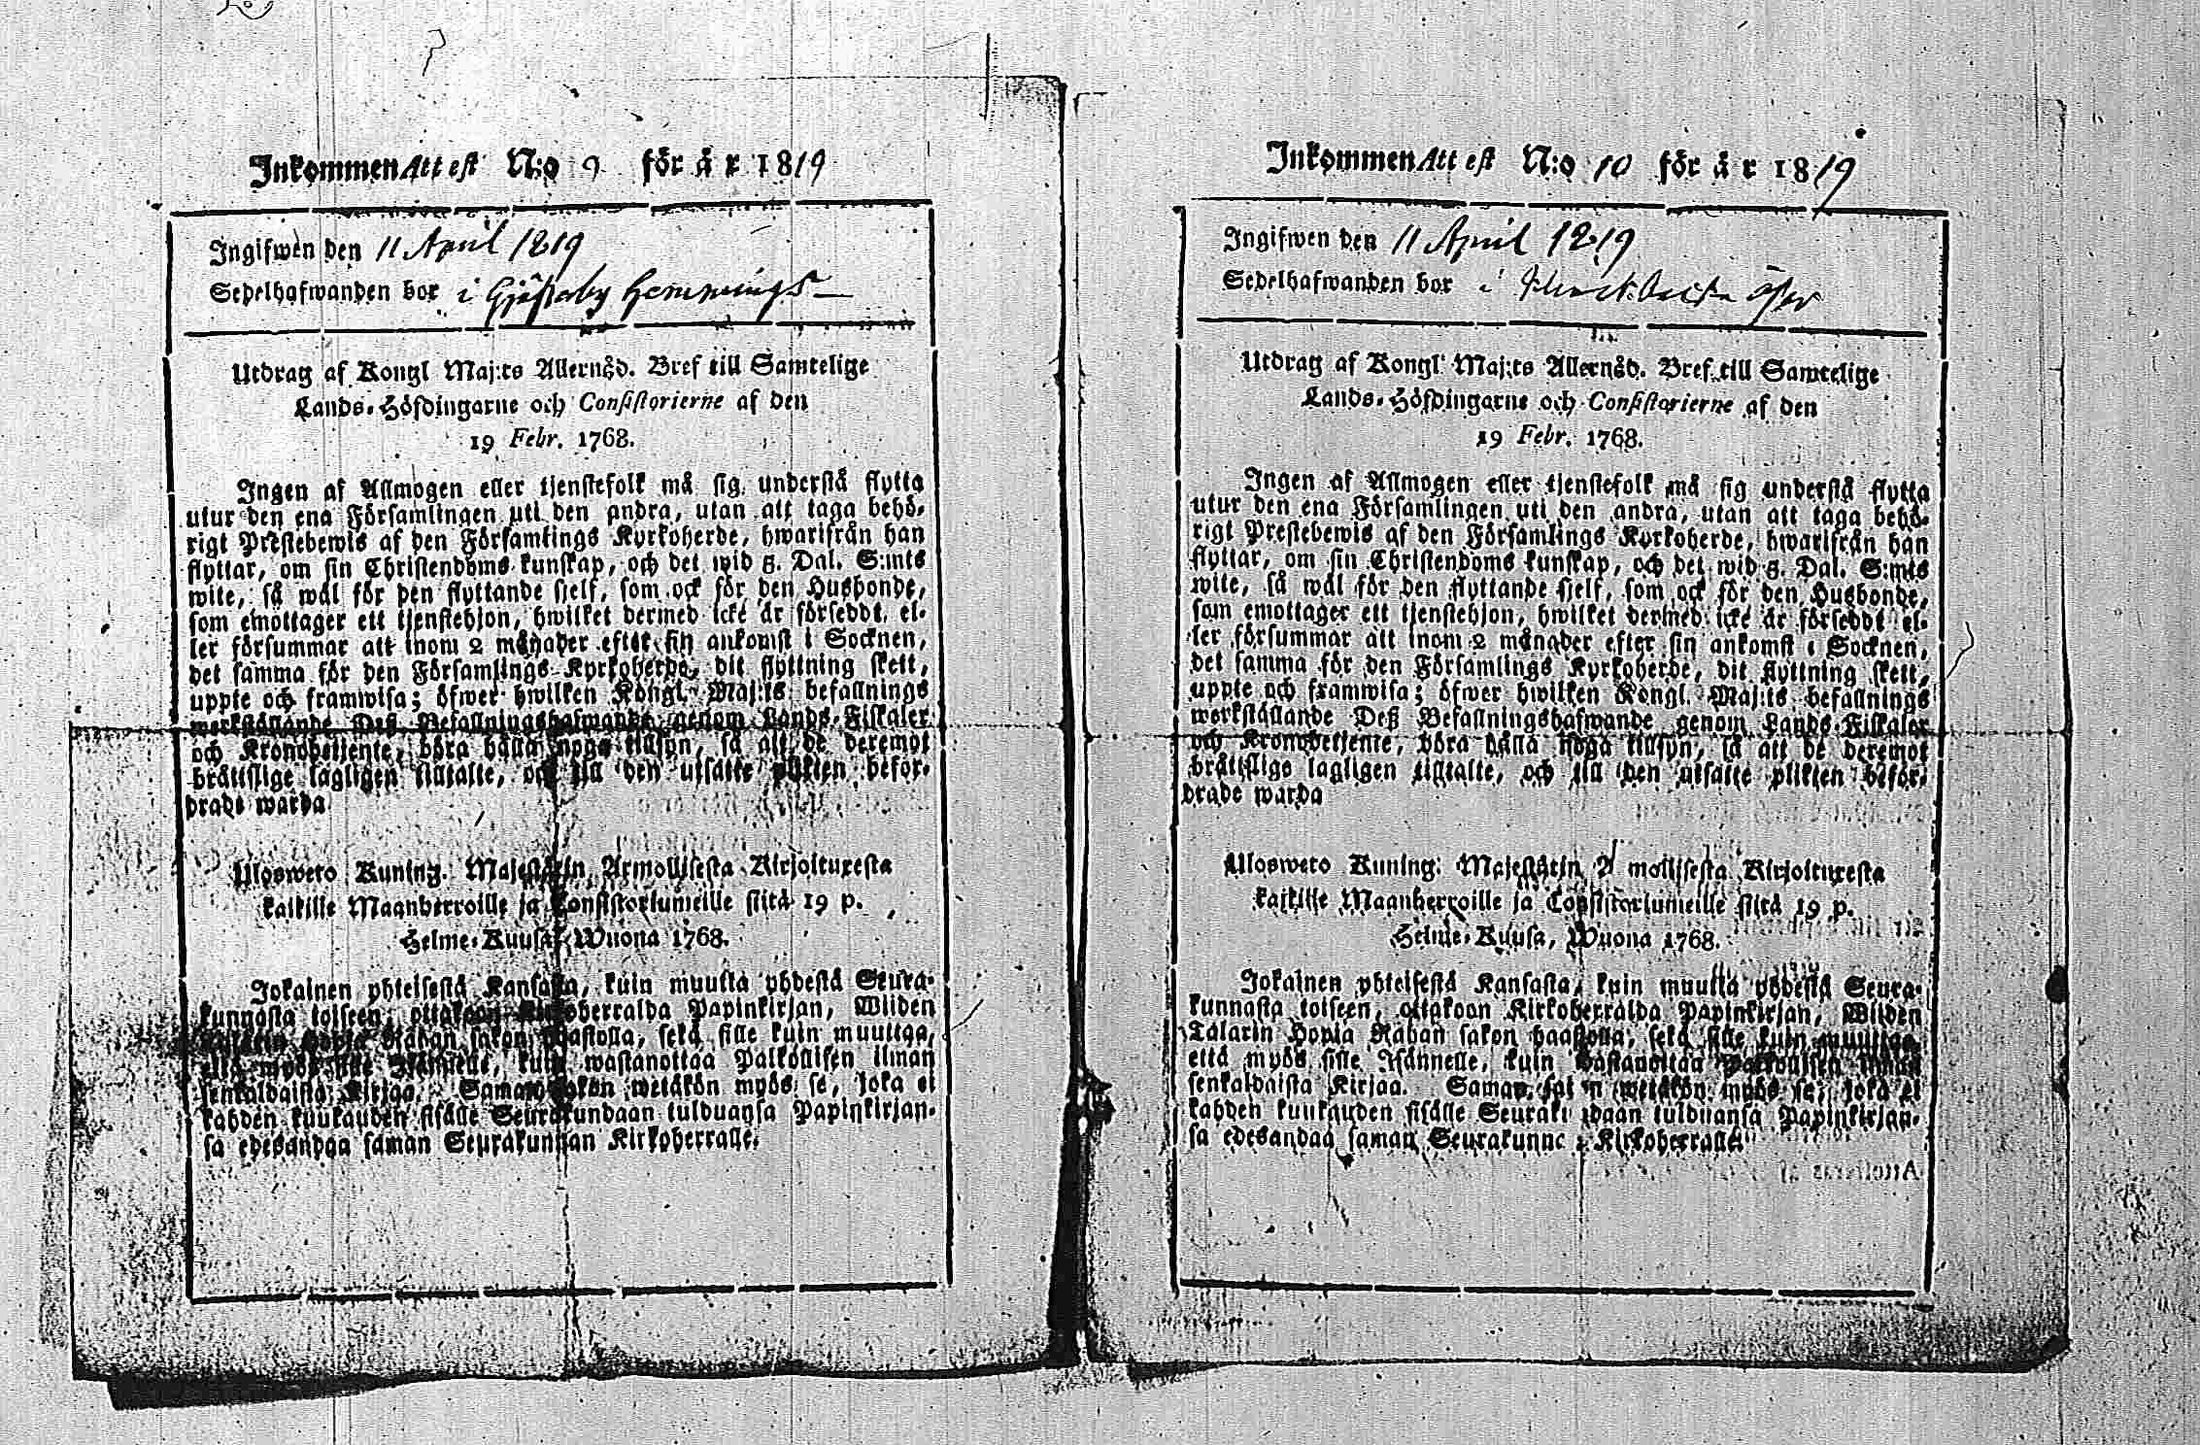 Inkommen Attest N:o 9 för år 1819
Ingifwen den 11 April 1819
Sedelhafwanden bor i Gjästerby Hemmings
Utdrag af Kongl Maj:ts Allernåd. Bref till Samtelige
Lands-Höfdingarne och Consistorierne af den
19 Febr. 1768.
Ingen af Allmogen eller tjenstefolk må sig understå flytta
utur den ena Församlingen uti den andra, utan att taga behö-
rigt Prestebewis af den Församlings Kyrkoherde, hwarifrån han
flyttar, om sin Christendoms kunskap, och det wid 8. Dal. S:mts
wite, så wäl för den flyttande sjelf, som ock för den Husbonde,
som emottager ett tjenstehjon, hwilket dermed icke är försedt, el-
ler försummar att inom 2 månader efter sin ankomst i Socknen,
det samma för den Församlings Kyrkoherde, dit flyttning skett,
uppte och framwisa; öfwer hwilken Kongl. Maj:ts befallnings
werkställande Deß Befallningshafwande genom Lands-Fiskaler
och Kronobetjente, böra hålla noga tillsyn, så att de deremot
bråttslige lagligen tilltalte, och till den utsatte plikten befor-
drade warda
Ulosweto Kuning. Majestätin Armollisesta Kirjoituxesta
kaikille Maanherroille ja Consistoriumeille siitä 19 p.
Helme-Kuusa, Wuona 1768.
Jokainen yhteisestä Kansasta, kuin muutta yhdestä Seura-
kunnasta toiseen, ottakoon Kirkoherralda Papinkirjan, Wiiden
Talarin Hopia Rahan sakon haastolla, sekä sille kuin muuttaa,
että myös sille Isännelle, kuin wastanottaa Palkollisen ilman
senkaldaista Kirjaa. Saman sakon wetäkön myös se, joka ei
kahden kuukauden sisälle Seurakundaan tulduansa Papinkirjan-
sa edesandaa saman Seurakunnan Kirkoherralle.
Inkommen Attest N:o 10 för år 1819
Ingifwen den 11 April 1819
Sedelhafwanden bor i
Utdrag af Kongl Maj:ts Allernåd. Bref till Samtelige
Lands-Höfdingarne och Consistorierne af den
19 Febr. 1768.
Ingen af Allmogen eller tjenstefolk må sig understå flytta
utur den ena Församlingen uti den andra, utan att taga behö-
rigt Prestebewis af den Församlings Kyrkoherde, hwarifrån han
flyttar, om sin Christendoms kunskap, och det wid 8. Dal. S:mts
wite, så wäl för den flyttande sjelf, som ock för den Husbonde,
som emottager ett tjenstehjon, hwilket dermed icke är försedt el-
ler försummar att inom 2 månader efter sin ankomst i Socknen,
det samma för den Församlings Kyrkoherde, dit flyttning skett,
uppte och framwisa; öfwer hwilken Kongl. Maj:ts befallnings
werkställande Deß Befallningshafwande genom Lands-Fiskaler
och Kronobetjente, böra hålla noga tillsyn, så att de deremot
bråttslige lagligen tilltalte, och till den utsatte plikten befor-
drade warda
Ulosweto Kuning. Majestätin A mollisesta Kirjoituxesta
kaikille Maanherroille ja Consistoriumeille siitä 19 p.
Helme-Kuusa, Wuona 1768.
Jokainen yhteisestä Kansasta, kuin muutta yhdestä Seura-
kunnasta toiseen, ottakoon Kirkoherralda Papinkirjan, Wiiden
Talarin Hopia Rahan sakon haastolla, sekä sille kuin muuttaa,
että myös sille Isännelle, kuin wastanottaa Palkollisen ilman
senkaldaista Kirjaa. Saman sakon wetäkön myös se, joka ei
kahden kuukauden sisälle Seurakundaan tulduansa Papinkirjan-
sa edesandaa saman Seurakunnan Kirkoherralle.